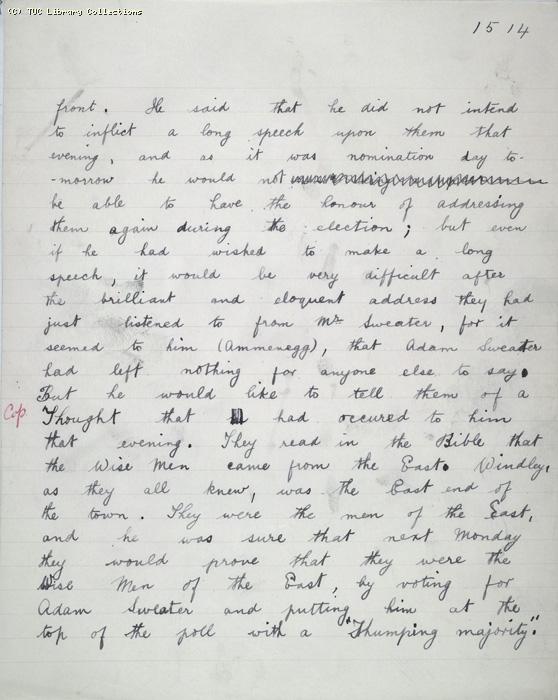 (C) TUC Library Collections
15 14
front. He said that he did not intend
to inflict a long speech upon them that
evening, and as it was nomination day to-
-morrow he would not
be able to have the honour of addressing
them again during the election; but even
if he had wished to make a long
speech, it would be very difficult after
the brilliant and eloquent address they had
just listened to from Mr Sweater, for it
seemed to him (Ammenegg), that Adam Sweater
had left nothing for anyone else to say.
But he would like to tell them of a
Cap. Thought that had occured to him
that evening. They read in the Bible that
the Wise Men came from the East. Windley,
as they all knew, was the East end of
the town. They were the men of the East,
and he was sure that next Monday
they would prove that they were the
Wise Men of the East, by voting for
Adam Sweater and putting him at the
top of the poll with a "Thumping majority."